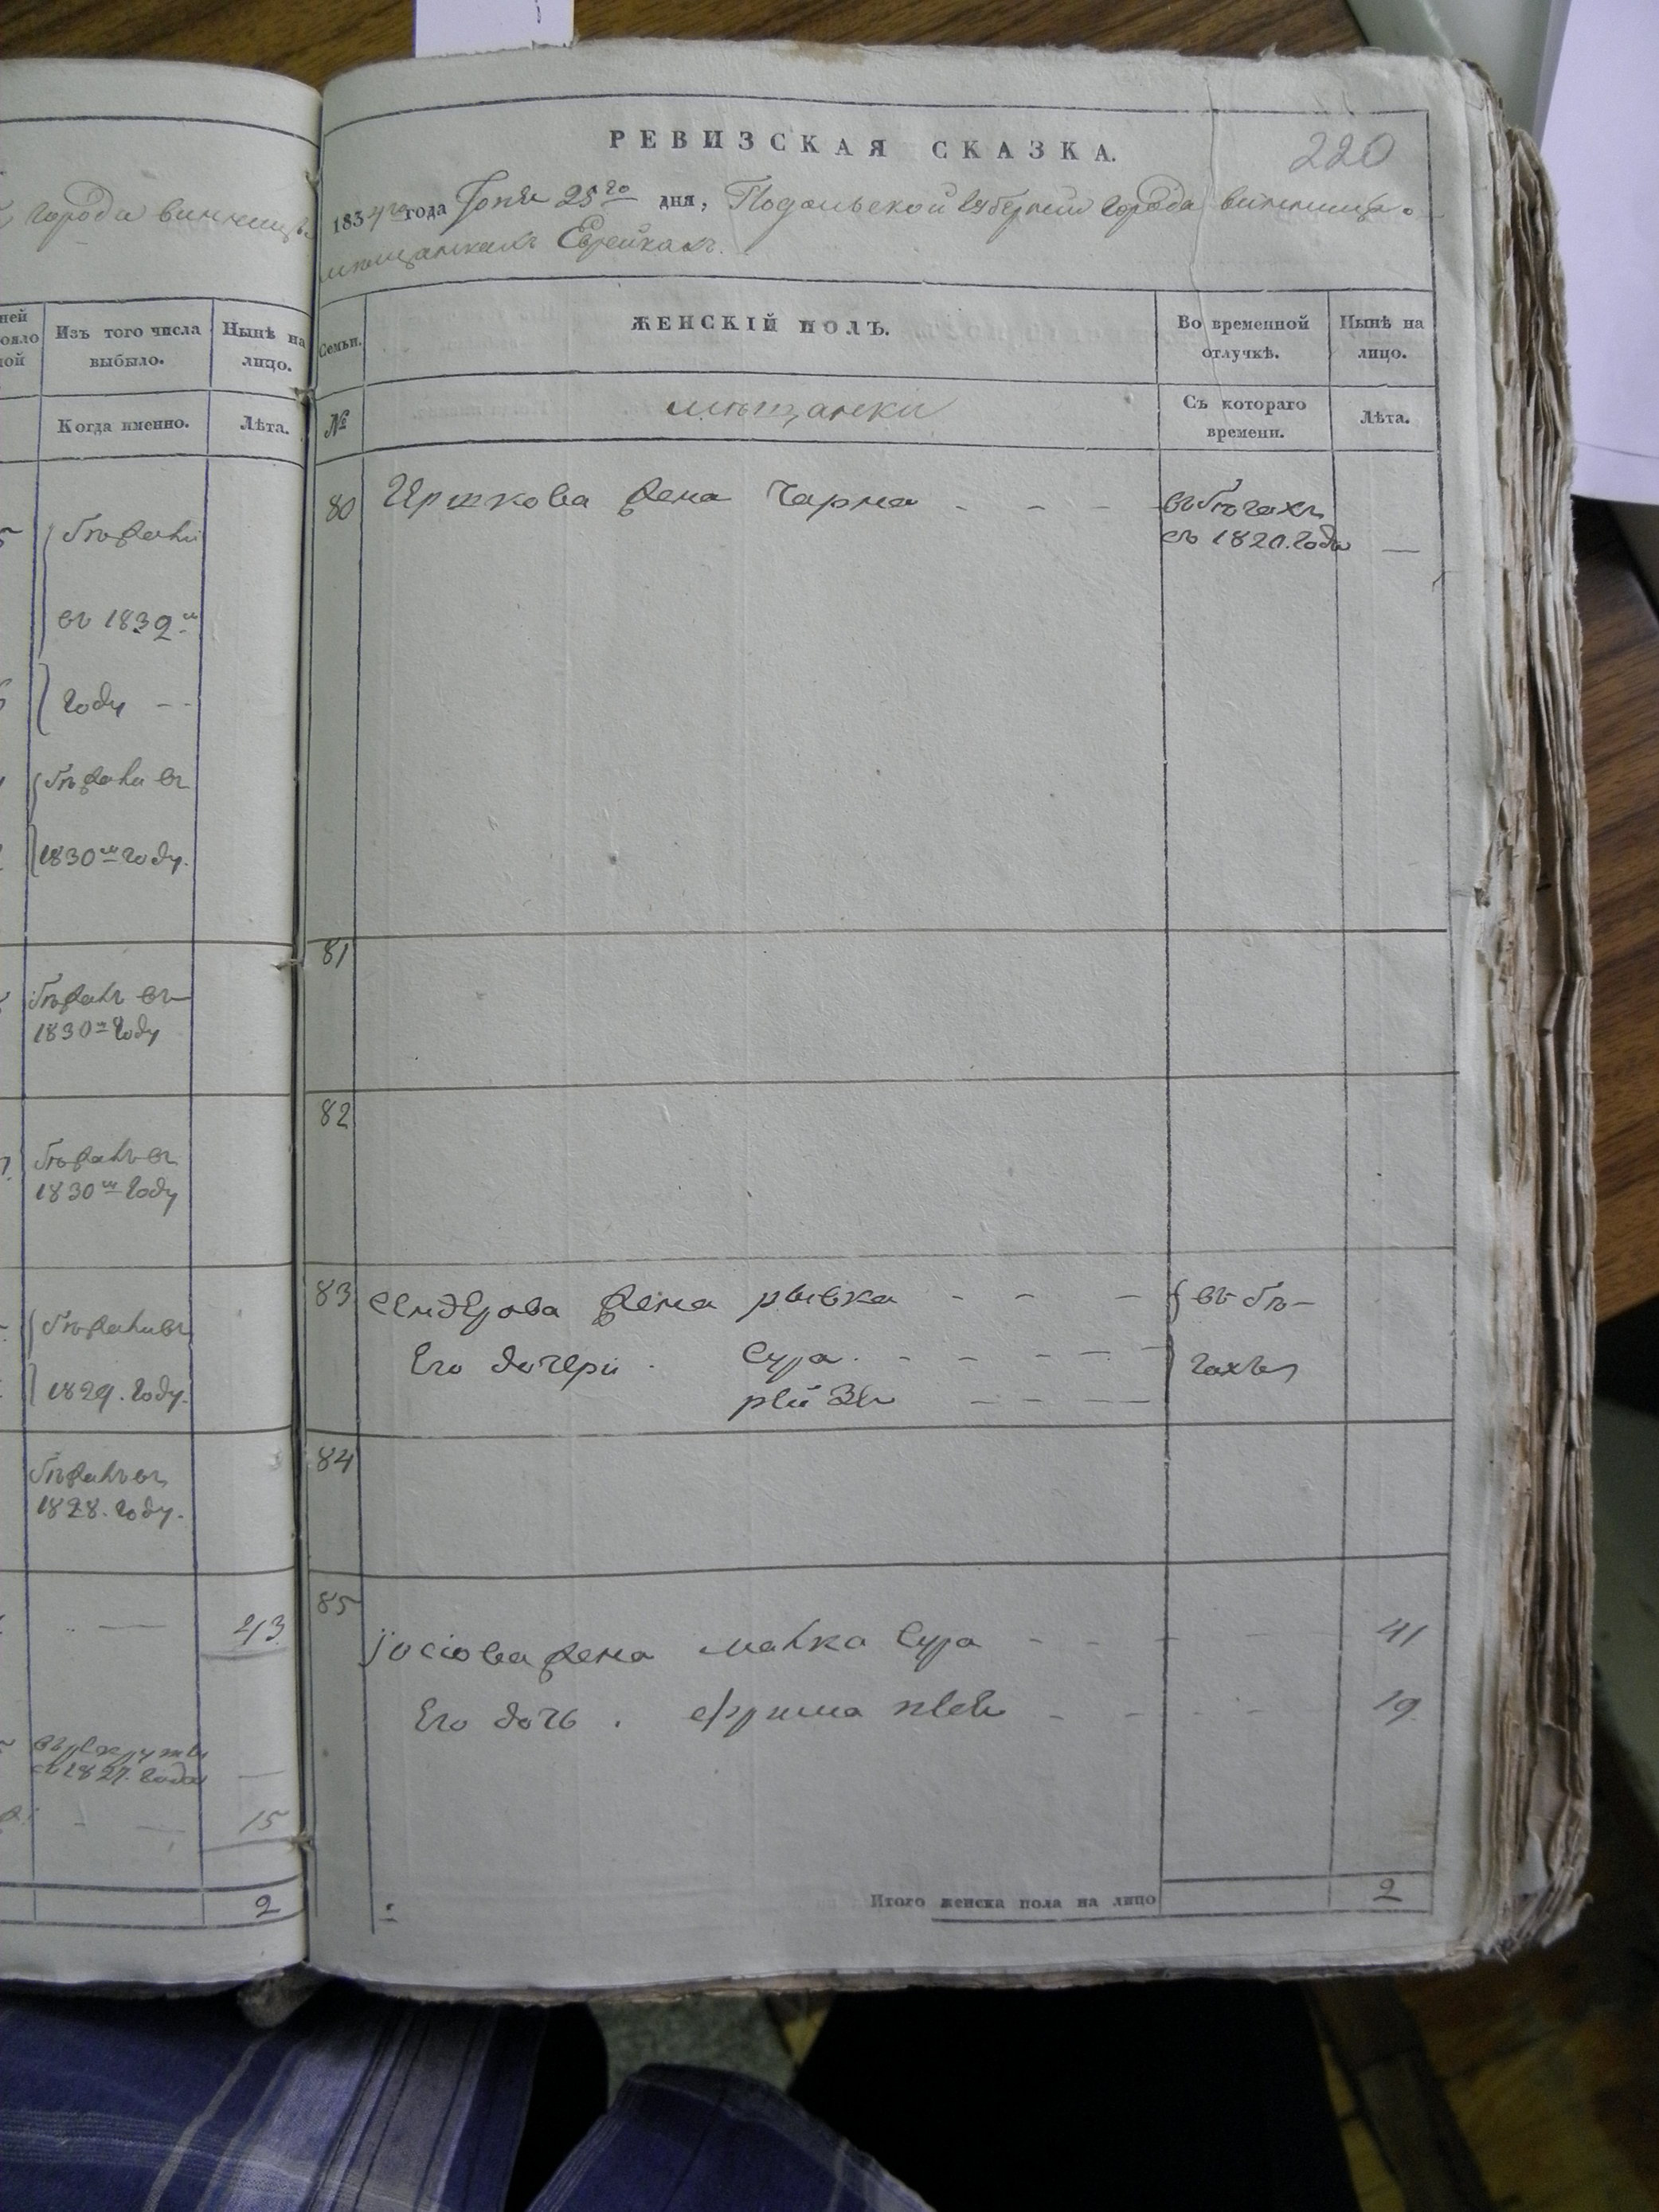 города винницы
Изъ того числа выбыло.
Нынѣ на лицо.
Когда именно.
Лѣта.
бѣжали
въ 1832м
году - -
бѣжали въ
1830м году.
бѣжалъ въ
1830м году
бѣжалъ въ
1830м году
бѣжали въ
1829. году.
бѣжалъ въ
1828. году.
43.
въ рекруты
съ 1827. года
15
2
РЕВИЗСКАЯ СКАЗКА.
220
1834го года Іюня 25го дня, Подольской губерніи города винницы о
мѣщанкахъ Еврейкахъ.
Семьи.
ЖЕНСКІЙ ПОЛЪ.
Во временной отлучкѣ.
Нынѣ на лицо.
№
мѣщанки
Съ котораго времени.
Лѣта.
80 Ицкова жена Чарна - - - въ бѣгахъ
съ 1820. года —
81
82
83 сендерова жена рывка - - - въ бѣ-
Его дочери. Сура. - - - - гахъ
рейзя - - -
84
85
іосіова жена малка Сура - - - - 41
Его дочь. фрима - - - - 19
Итого женска пола на лицо 2